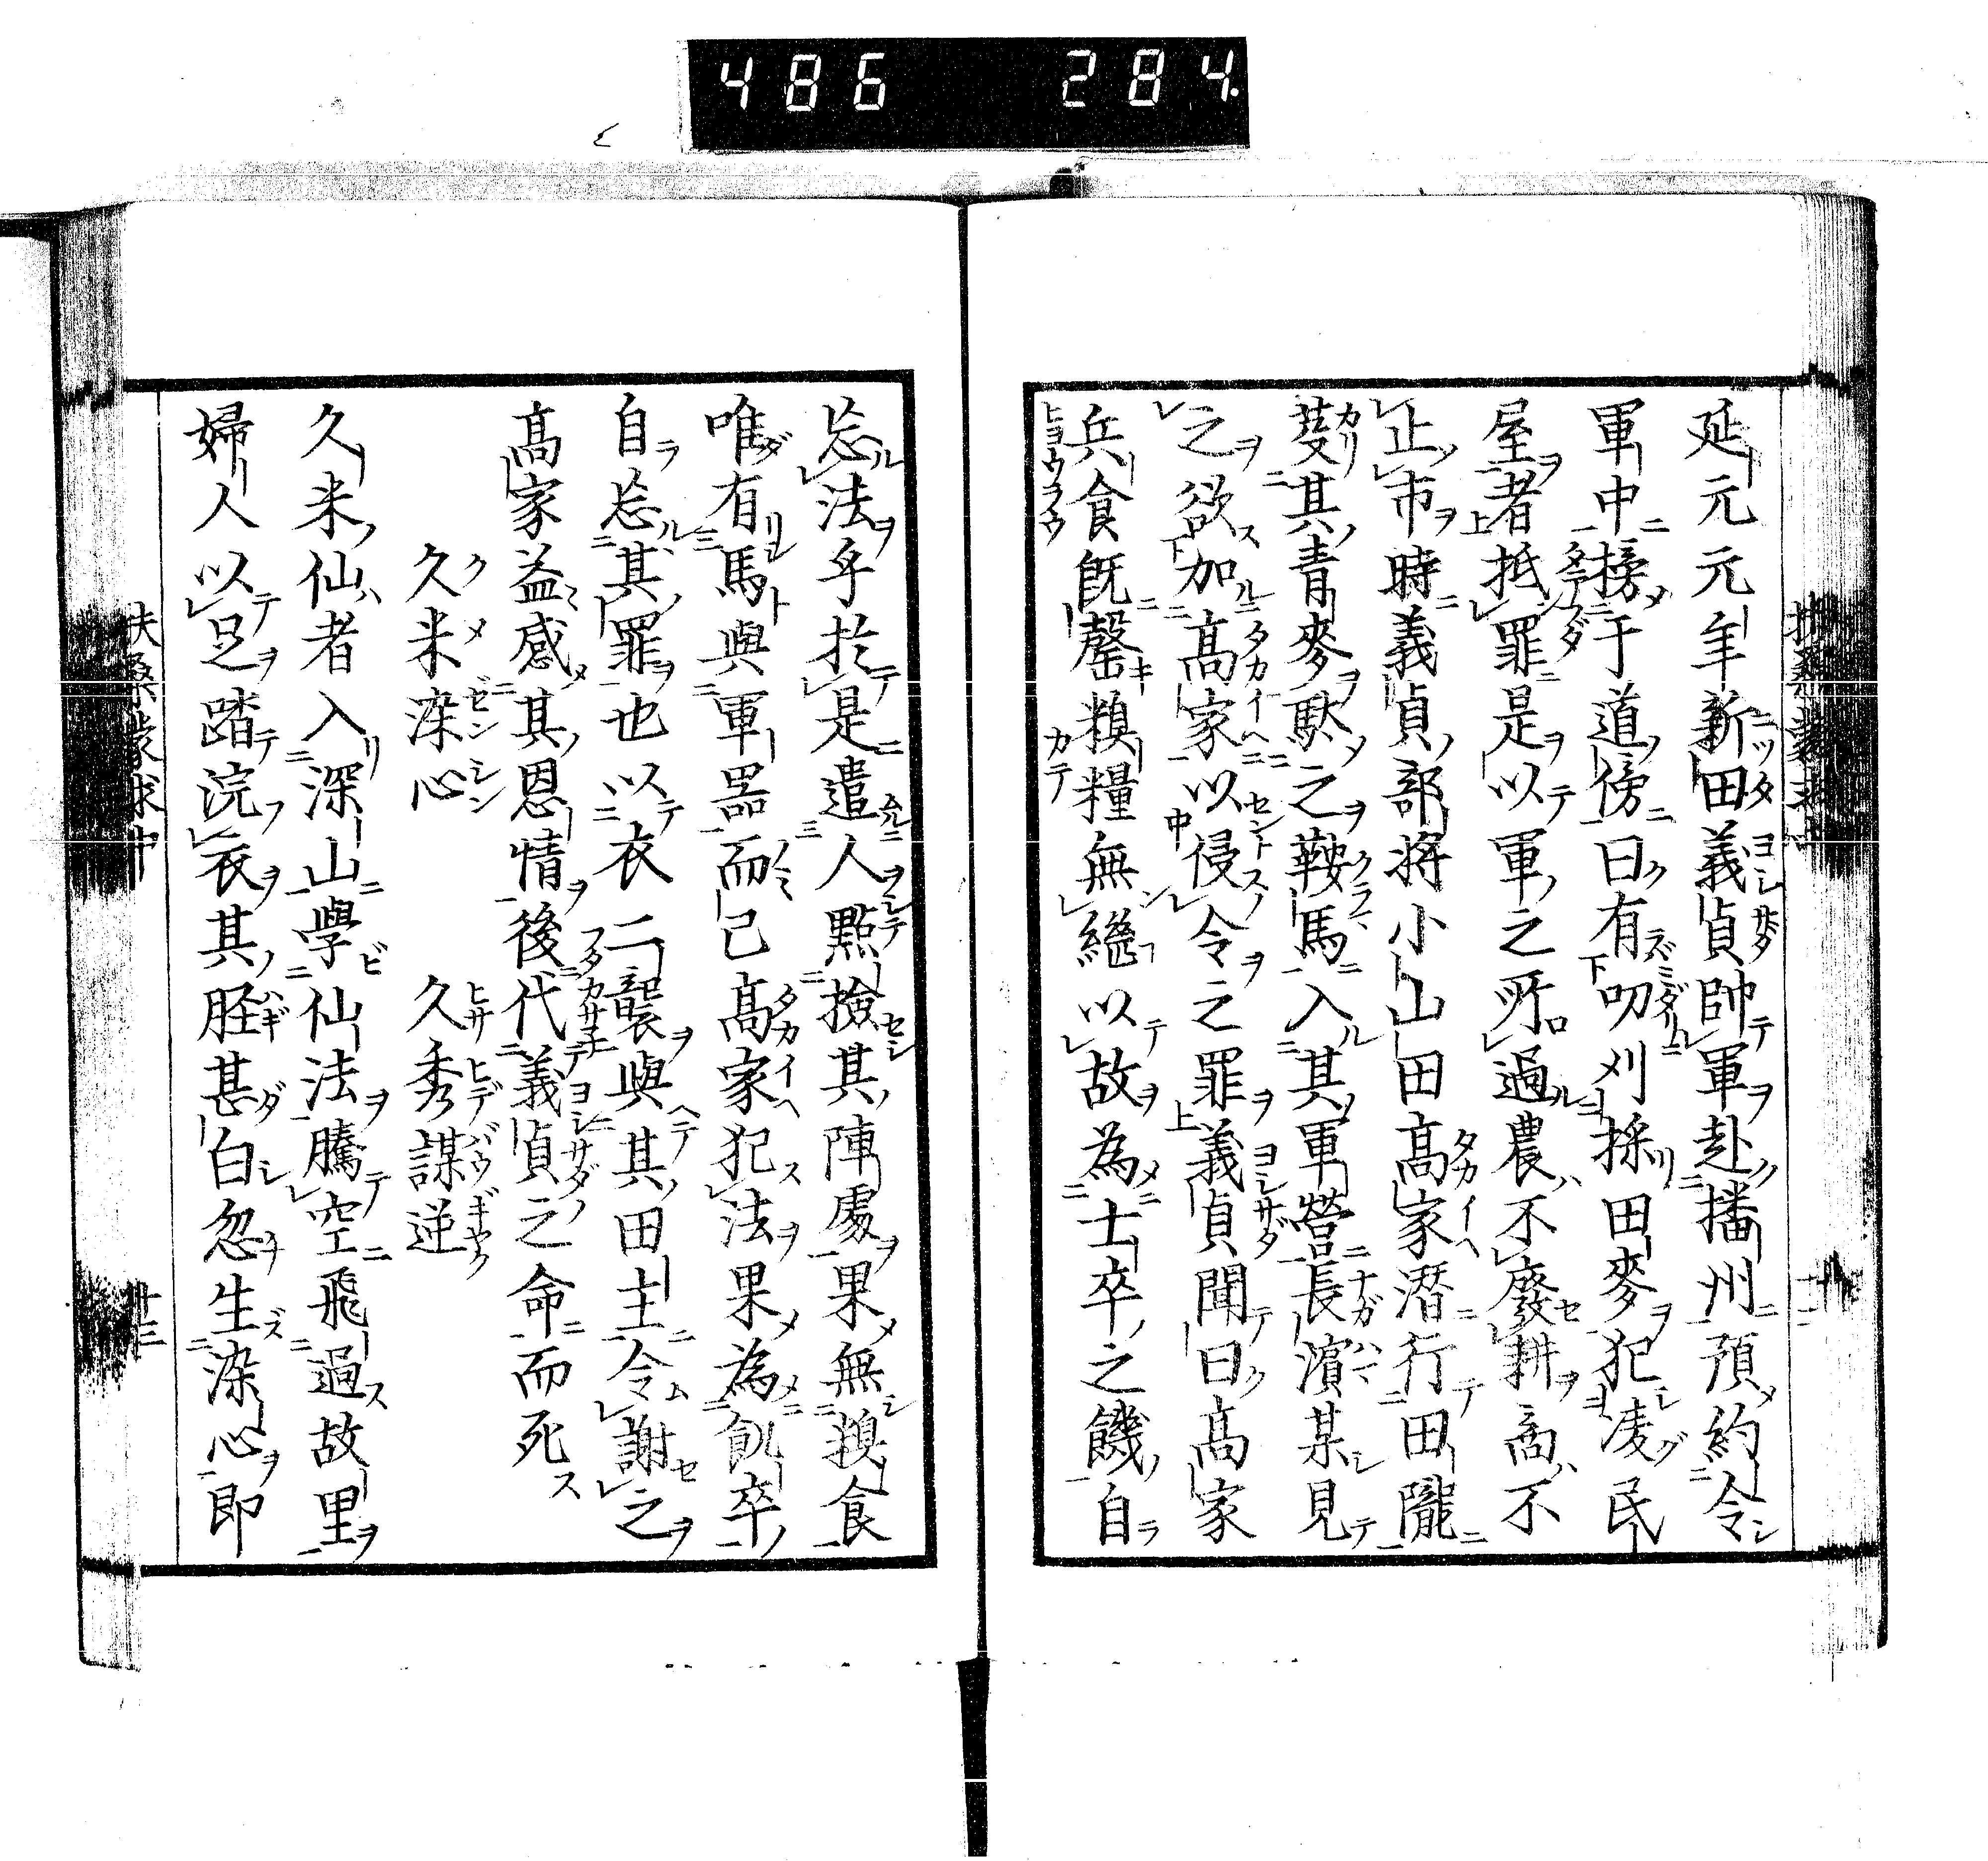 486 284.
延元元年新田義貞帥軍赴播州預約令
軍中榜于道傍曰有叨刈採田麥犯凌民
屋者抵罪是以軍之所過農不廢耕商不
止市時義貞部將小山田高家潛行田隴
芟其青麥馱之鞍馬入其軍營長濱某見
之欲加高家以侵令之罪義貞聞曰高家
兵食既罄糗糧無繼以故為士卒之饑自
忘法乎於是遣人點撿其陣處果無糗食
唯有馬與軍器而已高家犯法果為飢卒
自忘其罪也以衣二襲與其田主令謝之
高家益感其恩情後代義貞之命而死
久米染心 久秀謀逆
久米仙者入深山學仙法騰空飛過故里
婦人以足踏浣衣其脛甚白忽生染心即
扶桑蒙求中 十三